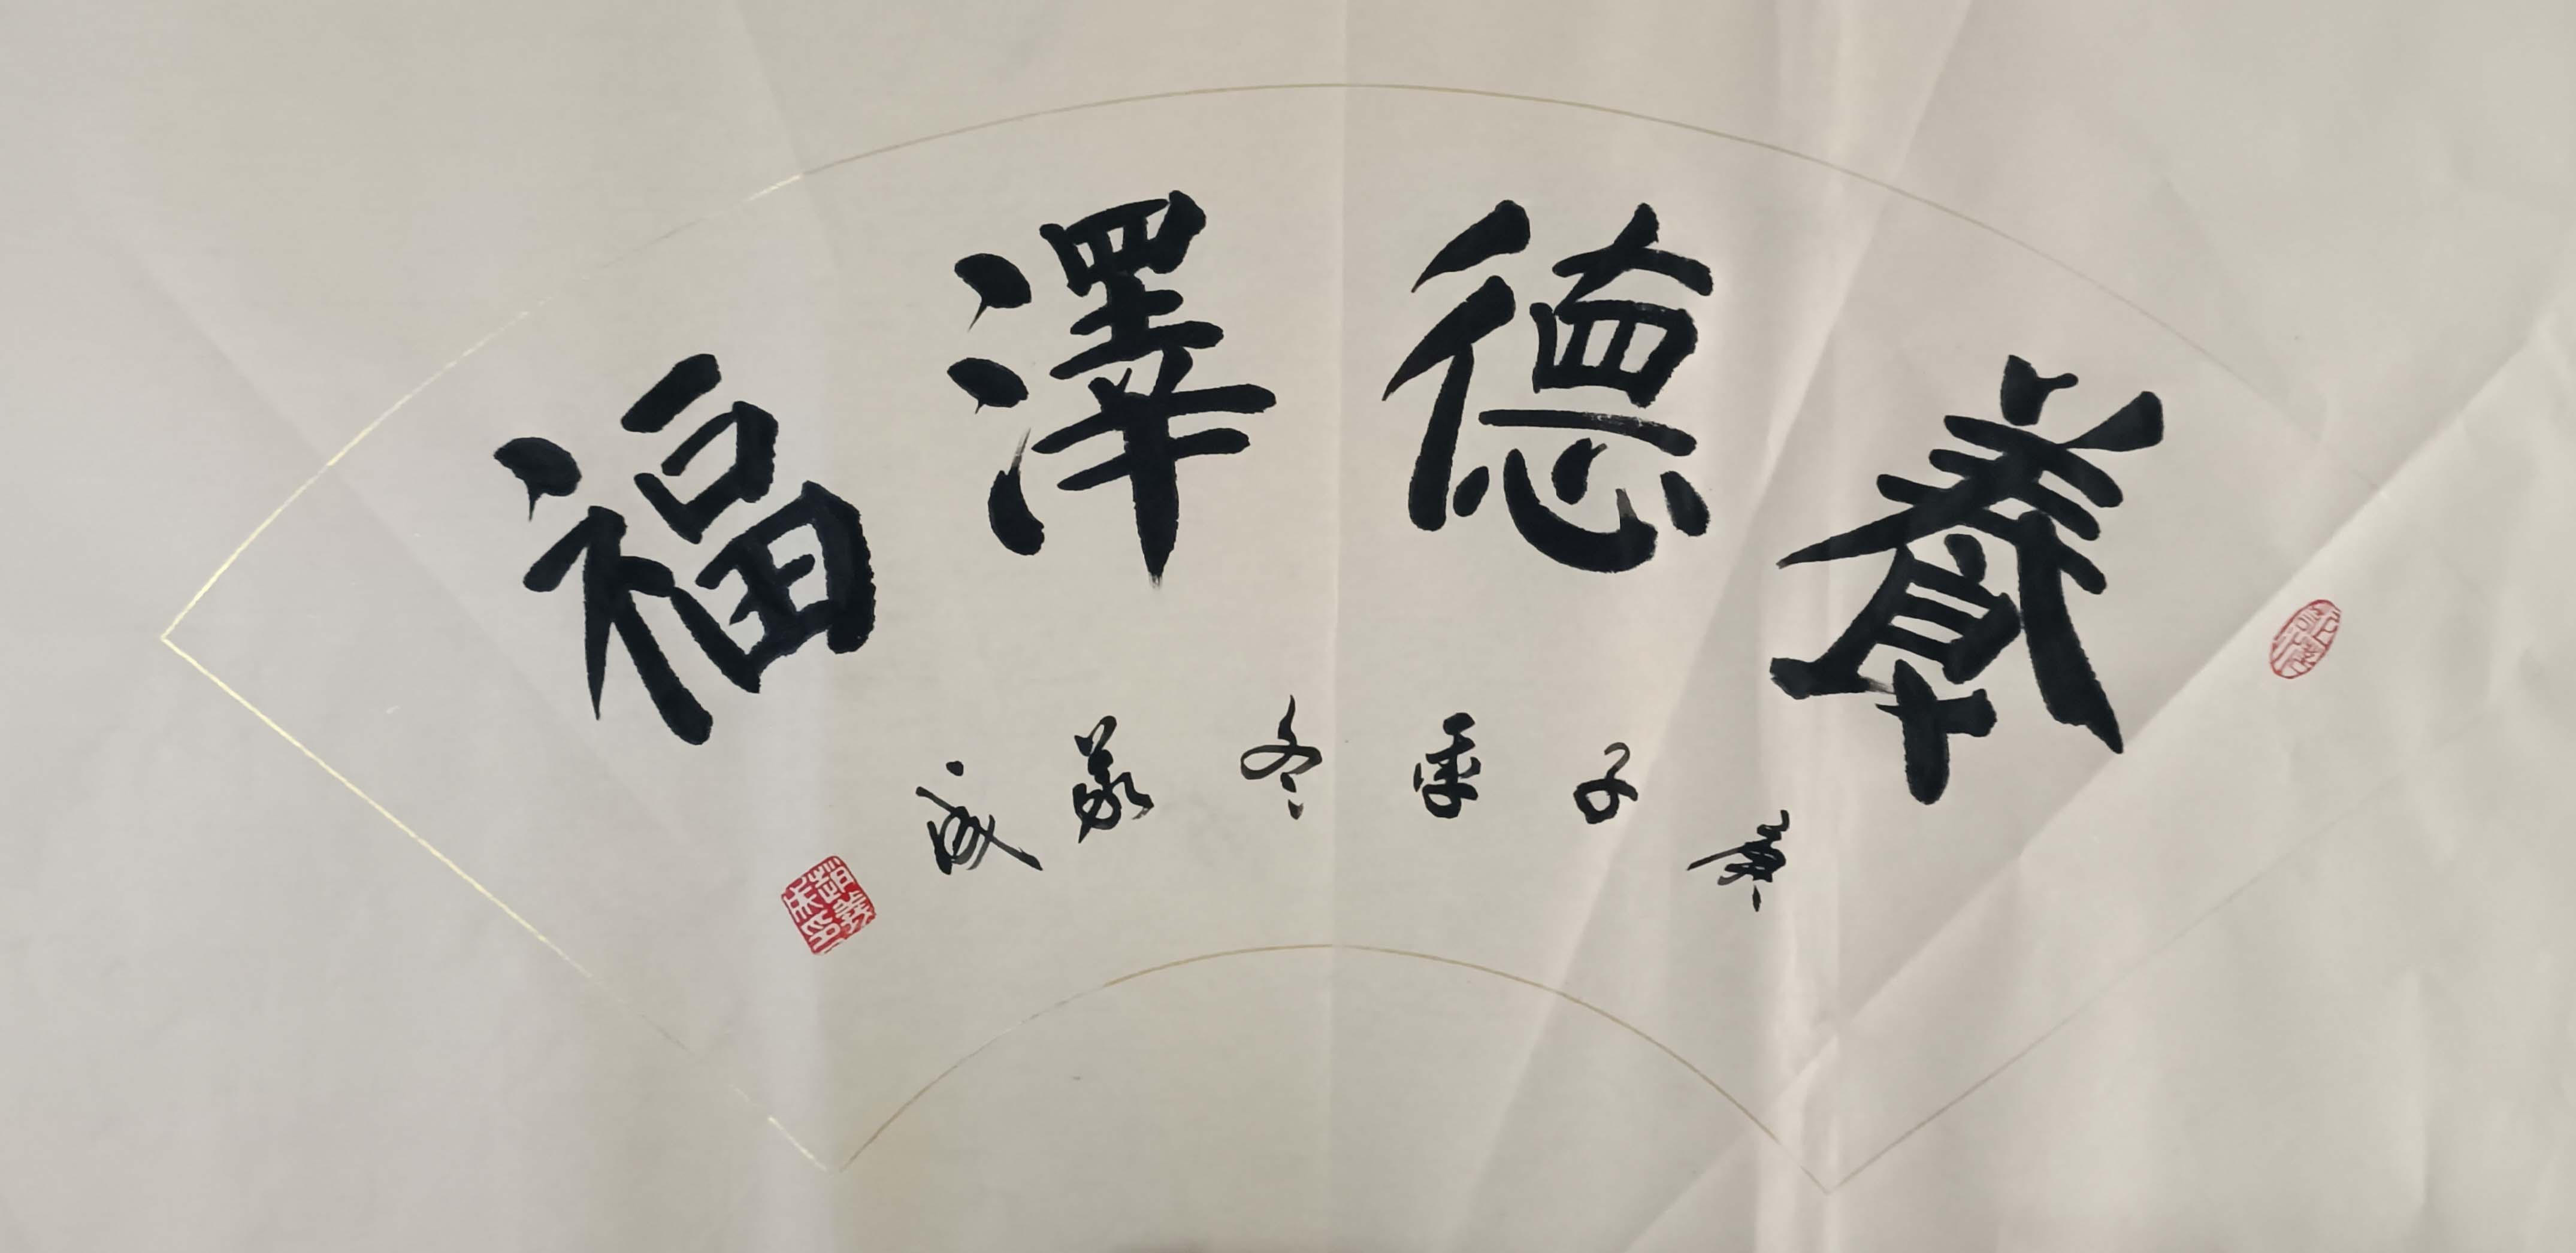 養德澤福
庚子季冬義成